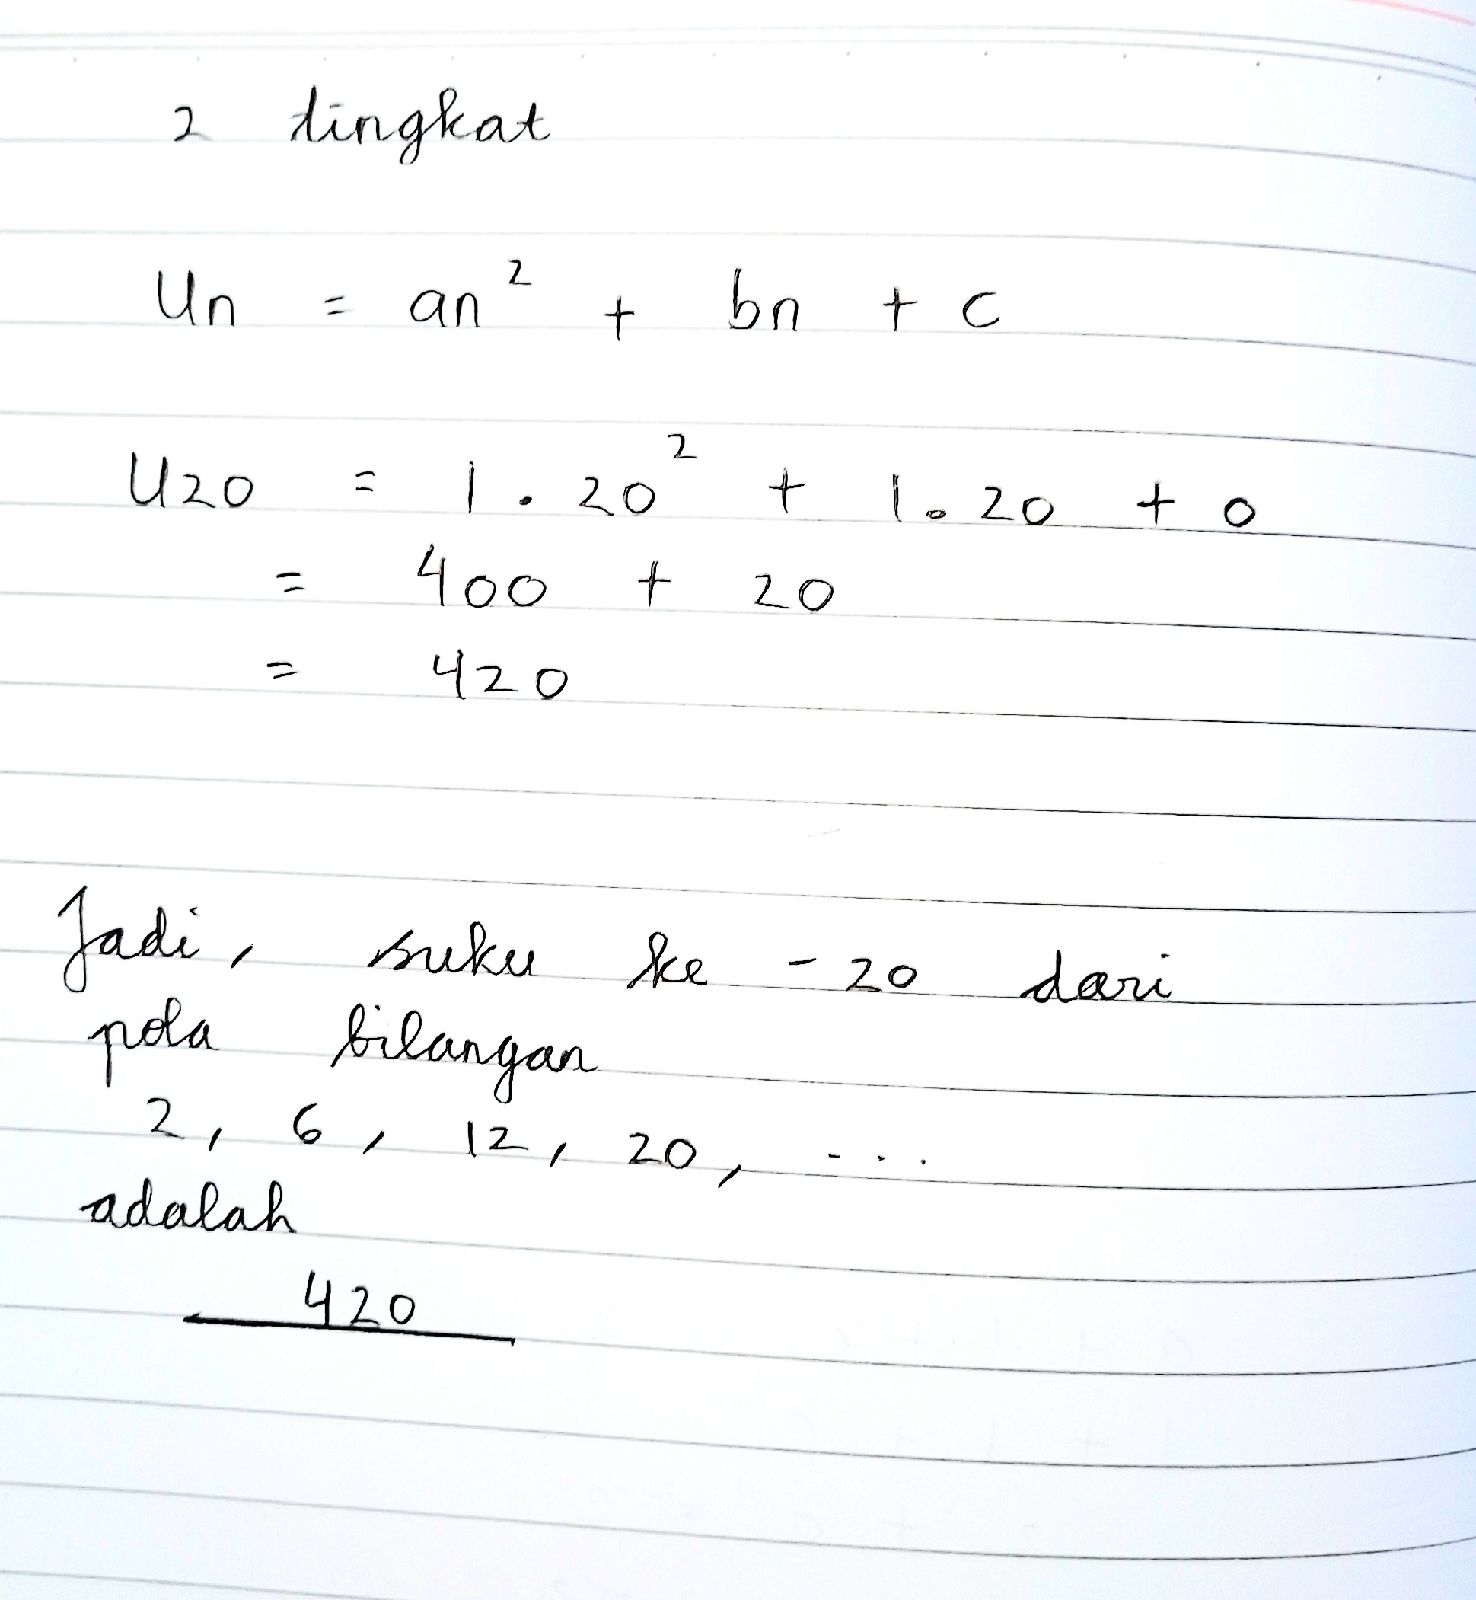 2 tingkat
Un = an² + bn + c
U20 = 1 . 20² + 1 . 20 + 0
= 400 + 20
= 420
Jadi, suku ke - 20 dari
pola bilangan
2, 6, 12, 20, ...
adalah
420